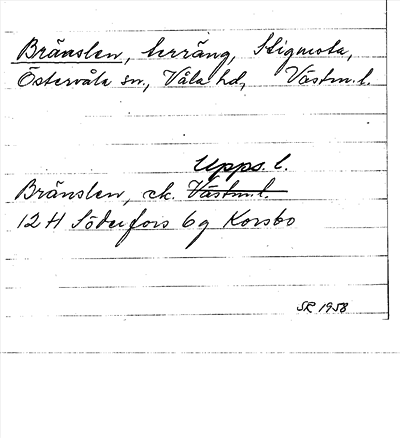 Bränslen, terräng, Stigmota,
Östervåla sn., Våla hd, Västm. l.
Upps. l.
Bränslen, ek. Västm. l.
12 H Söderfors 6 g Korsbo
SR 1958